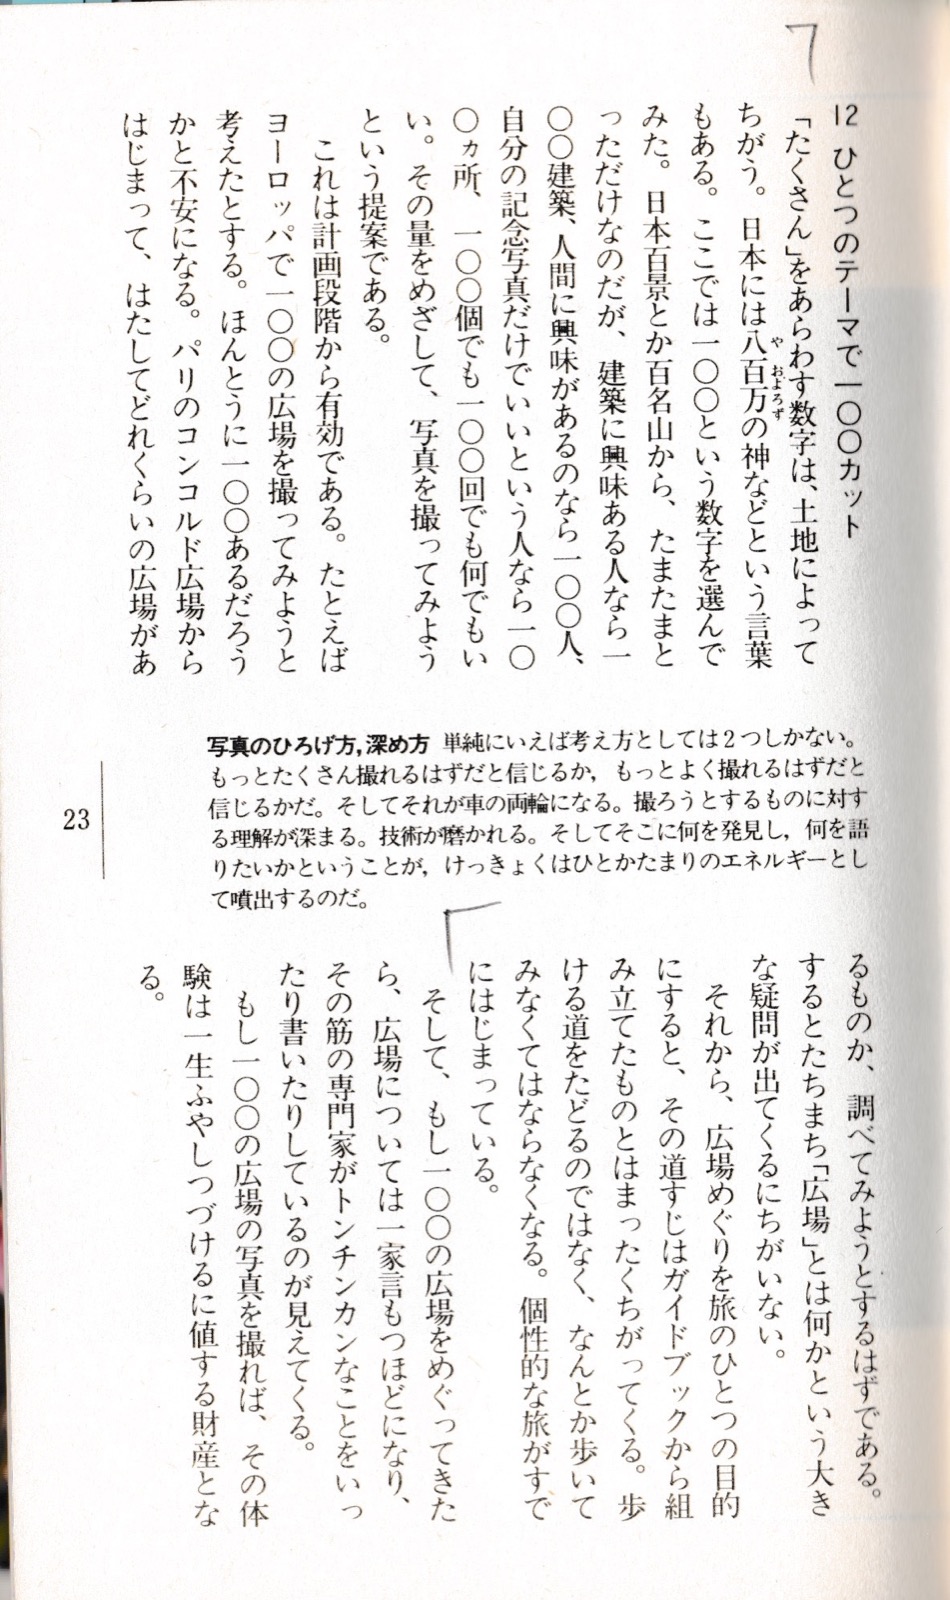 12 ひとつのテーマで一〇〇カット
「たくさん」をあらわす数字は、土地によって
ちがう。日本には八百万の神などという言葉
や およろず
もある。ここでは一〇〇という数字を選んで
みた。日本百景とか百名山から、たまたまと
っただけなのだが、建築に興味ある人なら一
〇〇建築、人間に興味があるのなら一〇〇人、
自分の記念写真だけでいいという人なら一〇
〇ヵ所、一〇〇個でも一〇〇回でも何でもい
い。その量をめざして、写真を撮ってみよう
という提案である。
これは計画段階から有効である。たとえば
ヨーロッパで一〇〇の広場を撮ってみようと
考えたとする。ほんとうに一〇〇あるだろう
かと不安になる。パリのコンコルド広場から
はじまって、はたしてどれくらいの広場があ
るものか、調べてみようとするはずである。
するとたちまち「広場」とは何かという大き
な疑問が出てくるにちがいない。
それから、広場めぐりを旅のひとつの目的
にすると、その道すじはガイドブックから組
み立てたものとはまったくちがってくる。歩
ける道をたどるのではなく、なんとか歩いて
みなくてはならなくなる。個性的な旅がすで
にはじまっている。
そして、もし一〇〇の広場をめぐってきた
ら、広場については一家言もつほどになり、
その筋の専門家がトンチンカンなことをいっ
たり書いたりしているのが見えてくる。
もし一〇〇の広場の写真を撮れば、その体
験は一生ふやしつづけるに値する財産とな
る。
写真のひろげ方,深め方 単純にいえば考え方としては2つしかない。
もっとたくさん撮れるはずだと信じるか,もっとよく撮れるはずだと
信じるかだ。そしてそれが車の両輪になる。撮ろうとするものに対す
る理解が深まる。技術が磨かれる。そしてそこに何を発見し,何を語
りたいかということが,けっきょくはひとかたまりのエネルギーとし
て噴出するのだ。
23